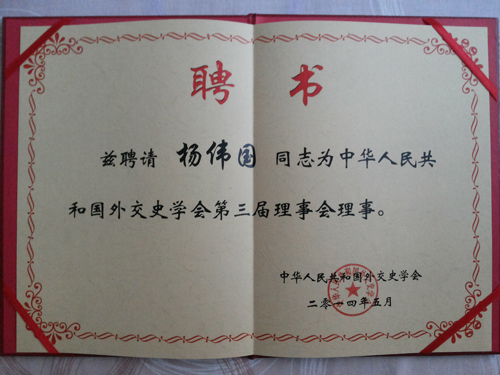 聘书
兹聘请 杨伟国 同志为中华人民共
和国外交史学会第三届理事会理事。
中华人民共和国外交史学会
二零一四年五月